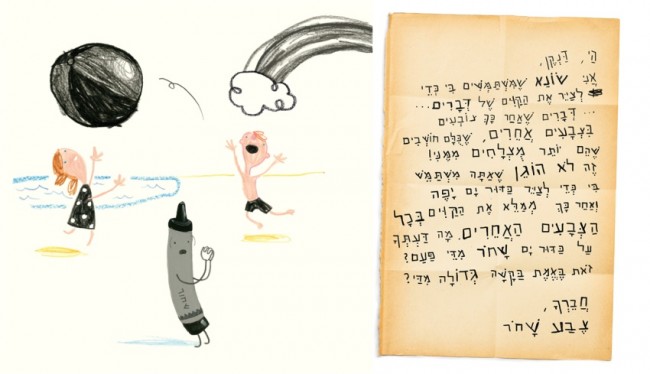 שחור
הַי, דַּנְקֶן,
אֲנִי שׂוֹנֵא שֶׁמִּשְׁתַּמְּשִׁים בִּי כְּדֵי
לְצַיֵּר אֶת הַקַּוִּים שֶׁל דְּבָרִים...
...דְּבָרִים שֶׁאַחַר כָּךְ צוֹבְעִים
בִּצְבָעִים אֲחֵרִים, שֶׁכֻּלָּם חוֹשְׁבִים
שֶׁהֵם יוֹתֵר מֻצְלָחִים מִמֶּנִּי!
זֶה לֹא הוֹגֵן שֶׁאַתָּה מִשְׁתַּמֵּשׁ
בִּי כְּדֵי לְצַיֵּר כַּדּוּר יָם יָפֶה
וְאַחַר כָּךְ מְמַלֵּא אֶת הַקַּוִּים בְּכָל
הַצְּבָעִים הָאֲחֵרִים. מָה דַּעְתְּךָ
עַל כַּדּוּר יָם שָׁחֹר מִדֵּי פַּעַם?
זֹאת בֶּאֱמֶת בַּקָּשָׁה גְּדוֹלָה מִדַּי?
חֲבֵרְךָ,
צֶבַע שָׁחֹר